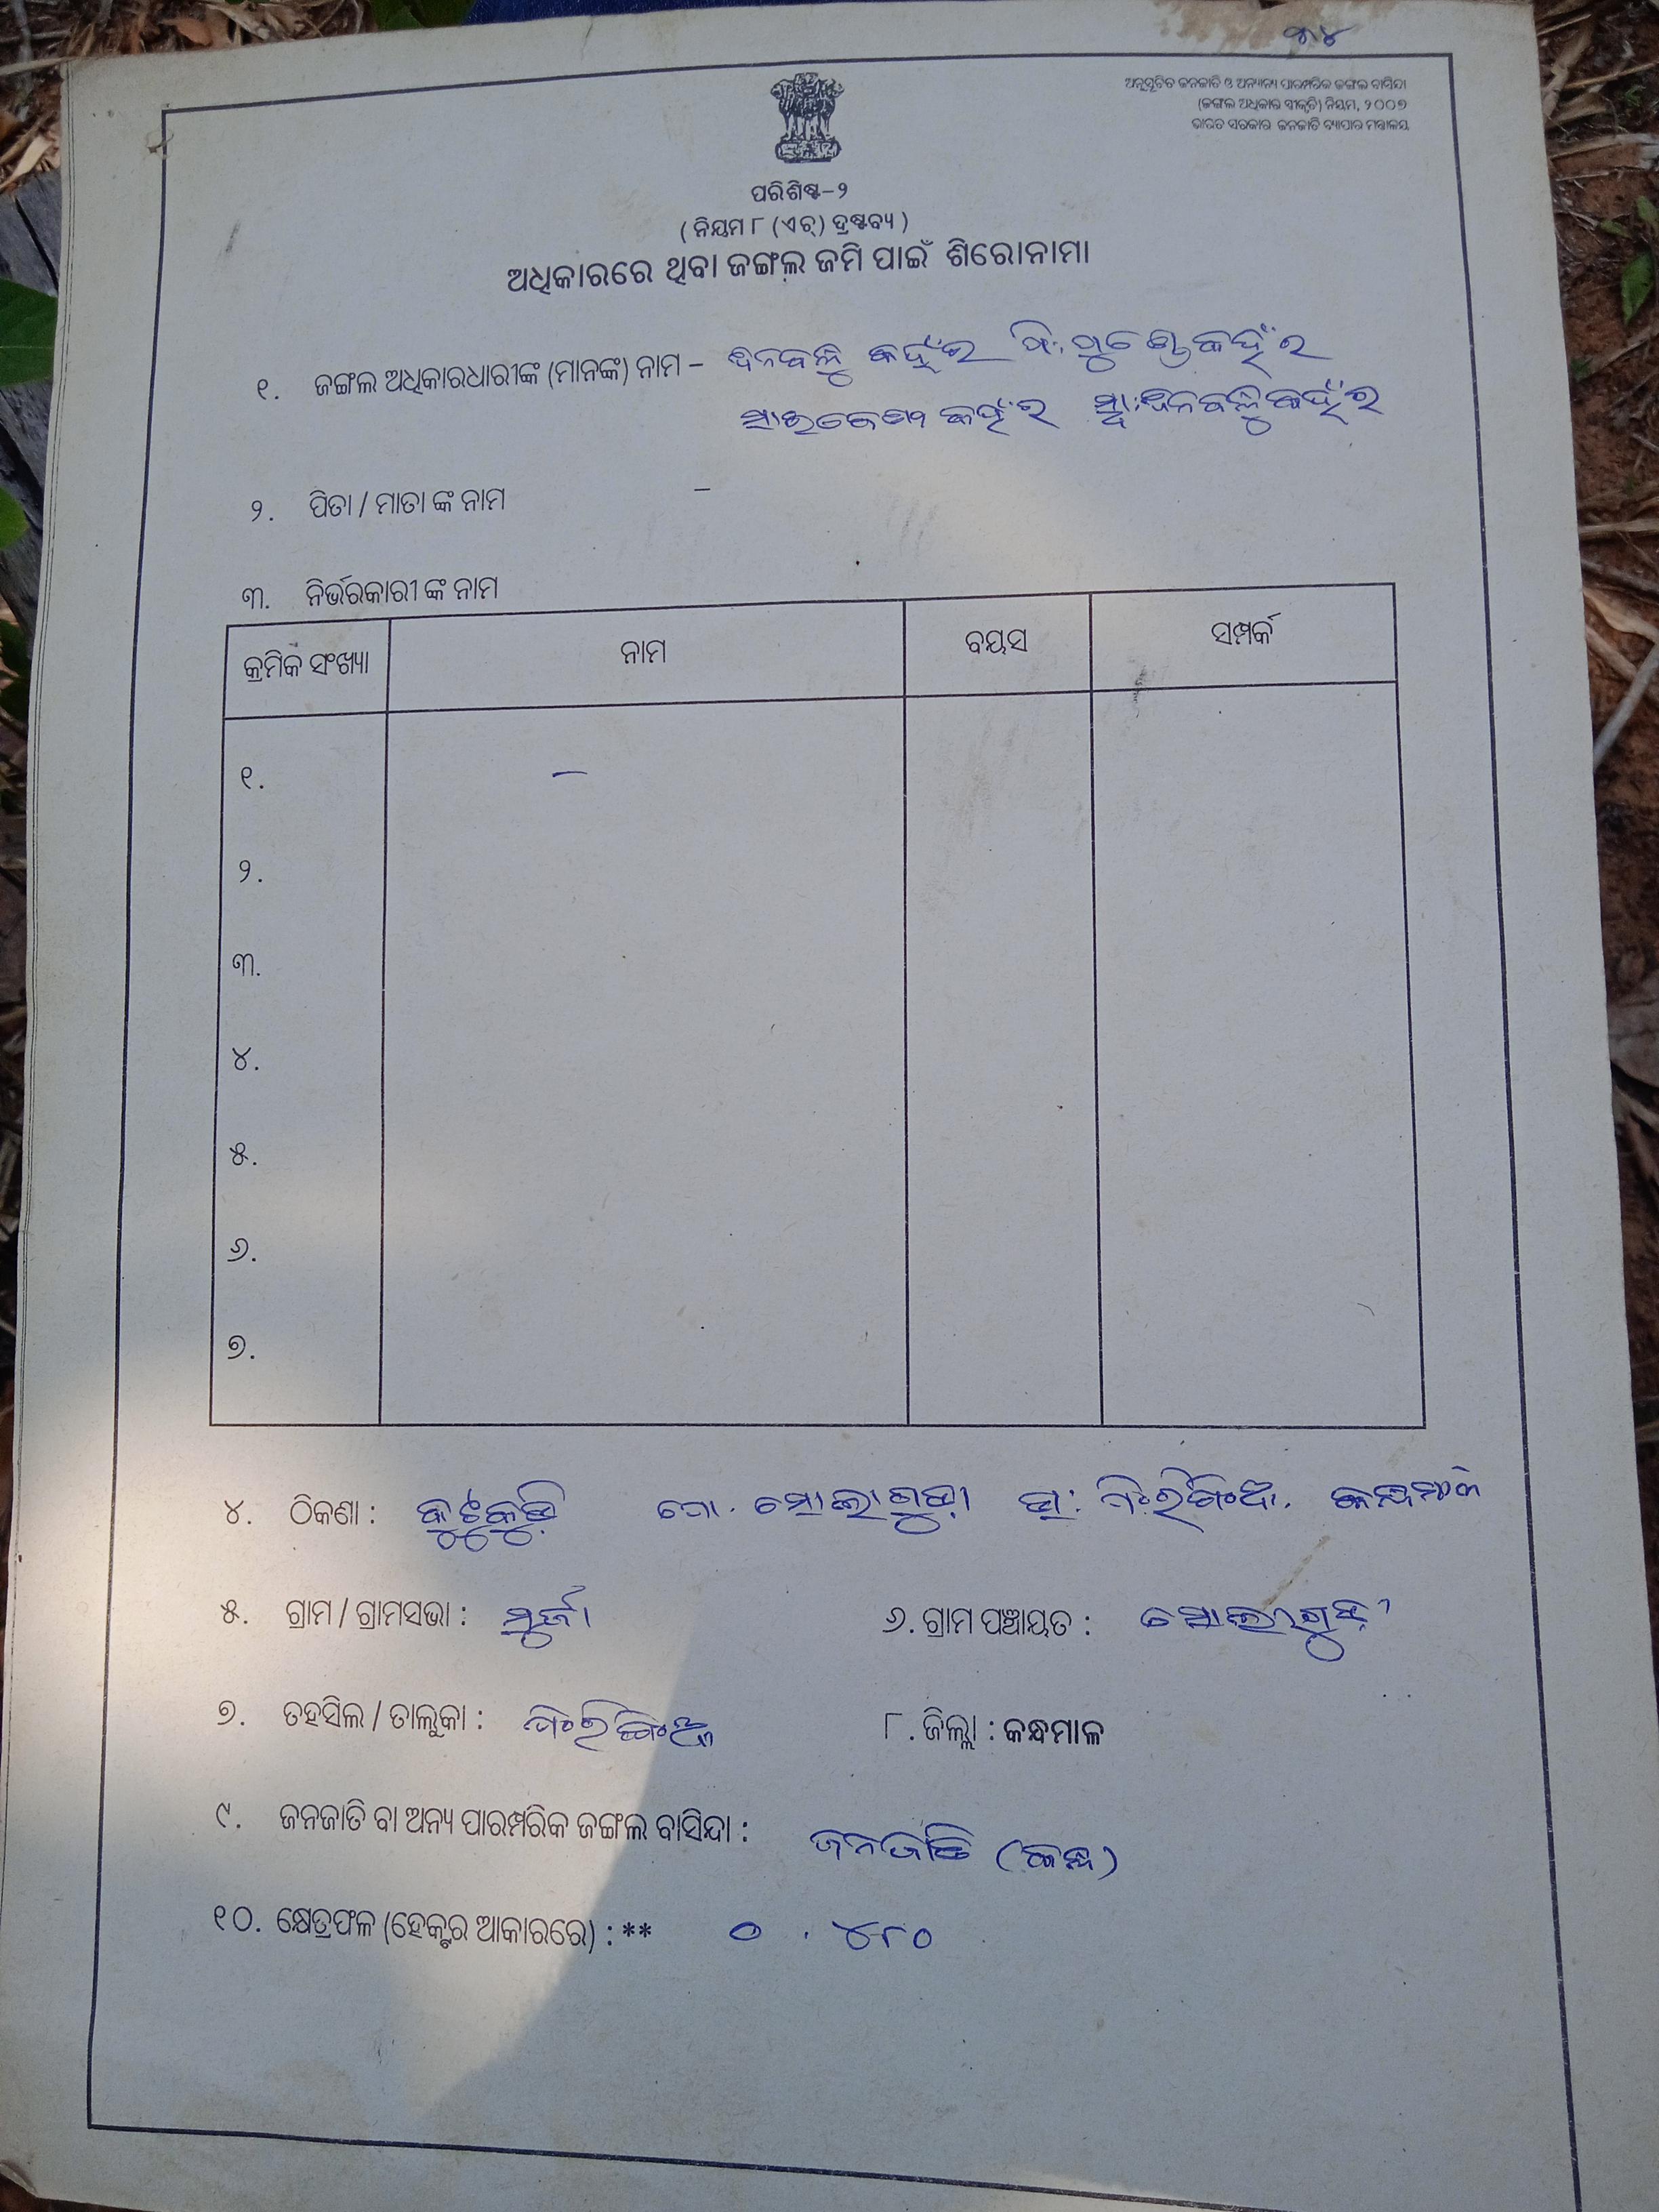 ୭୪
ଅନୁସୂଚିତ ଜନଜାତି ଓ ଅନ୍ୟାନ୍ୟ ପାରମ୍ପରିକ ଜଙ୍ଗଲ ବାସିନ୍ଦା
(ଜଙ୍ଗଲ ଅଧିକାର ସ୍ୱୀକୃତି) ନିୟମ, ୨୦୦୭
ଭାରତ ସରକାର ଜନଜାତି ବ୍ୟାପାର ମନ୍ତ୍ରାଳୟ
ପରିଶିଷ୍ଟ–୨
( ନିୟମ ୮ (ଏଚ୍) ଦ୍ରଷ୍ଟବ୍ୟ )
ଅଧିକାରରେ ଥିବା ଜଙ୍ଗଲ ଜମି ପାଇଁ ଶିରୋନାମା
୧. ଜଙ୍ଗଲ ଅଧିକାରଧାରୀଙ୍କ (ମାନଙ୍କ) ନାମ – ଧନବନ୍ଧୁ କହଁର ପି: କହଁର
କହଁର ସ୍ୱା: ଧନବନ୍ଧୁ କହଁର
୨. ପିତା / ମାତା ଙ୍କ ନାମ –
୩. ନିର୍ଭରକାରୀ ଙ୍କ ନାମ
କ୍ରମିକ ସଂଖ୍ୟା ନାମ ବୟସ ସମ୍ପର୍କ
୧. –
୨.
୩.
୪.
୫.
୬.
୭.
୪. ଠିକଣା : ପୋ. ଥା: କନ୍ଧମାଳ
୫. ଗ୍ରାମ / ଗ୍ରାମସଭା : ମୁର୍ଜା ୬. ଗ୍ରାମ ପଞ୍ଚାୟତ :
୭. ତହସିଲ / ତାଲୁକା : ୮. ଜିଲ୍ଲା : କନ୍ଧମାଳ
୯. ଜନଜାତି ବା ଅନ୍ୟ ପାରମ୍ପରିକ ଜଙ୍ଗଲ ବାସିନ୍ଦା : ଜନଜାତି (କନ୍ଧ)
୧୦. କ୍ଷେତ୍ରଫଳ (ହେକ୍ଟର ଆକାରରେ) : ** ୦ . ୪୮୦